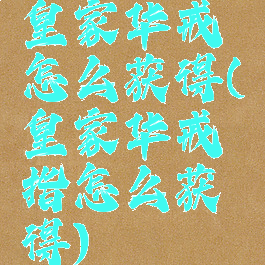 皇家华戒
怎么获得(
皇家华戒
指怎么获
得)